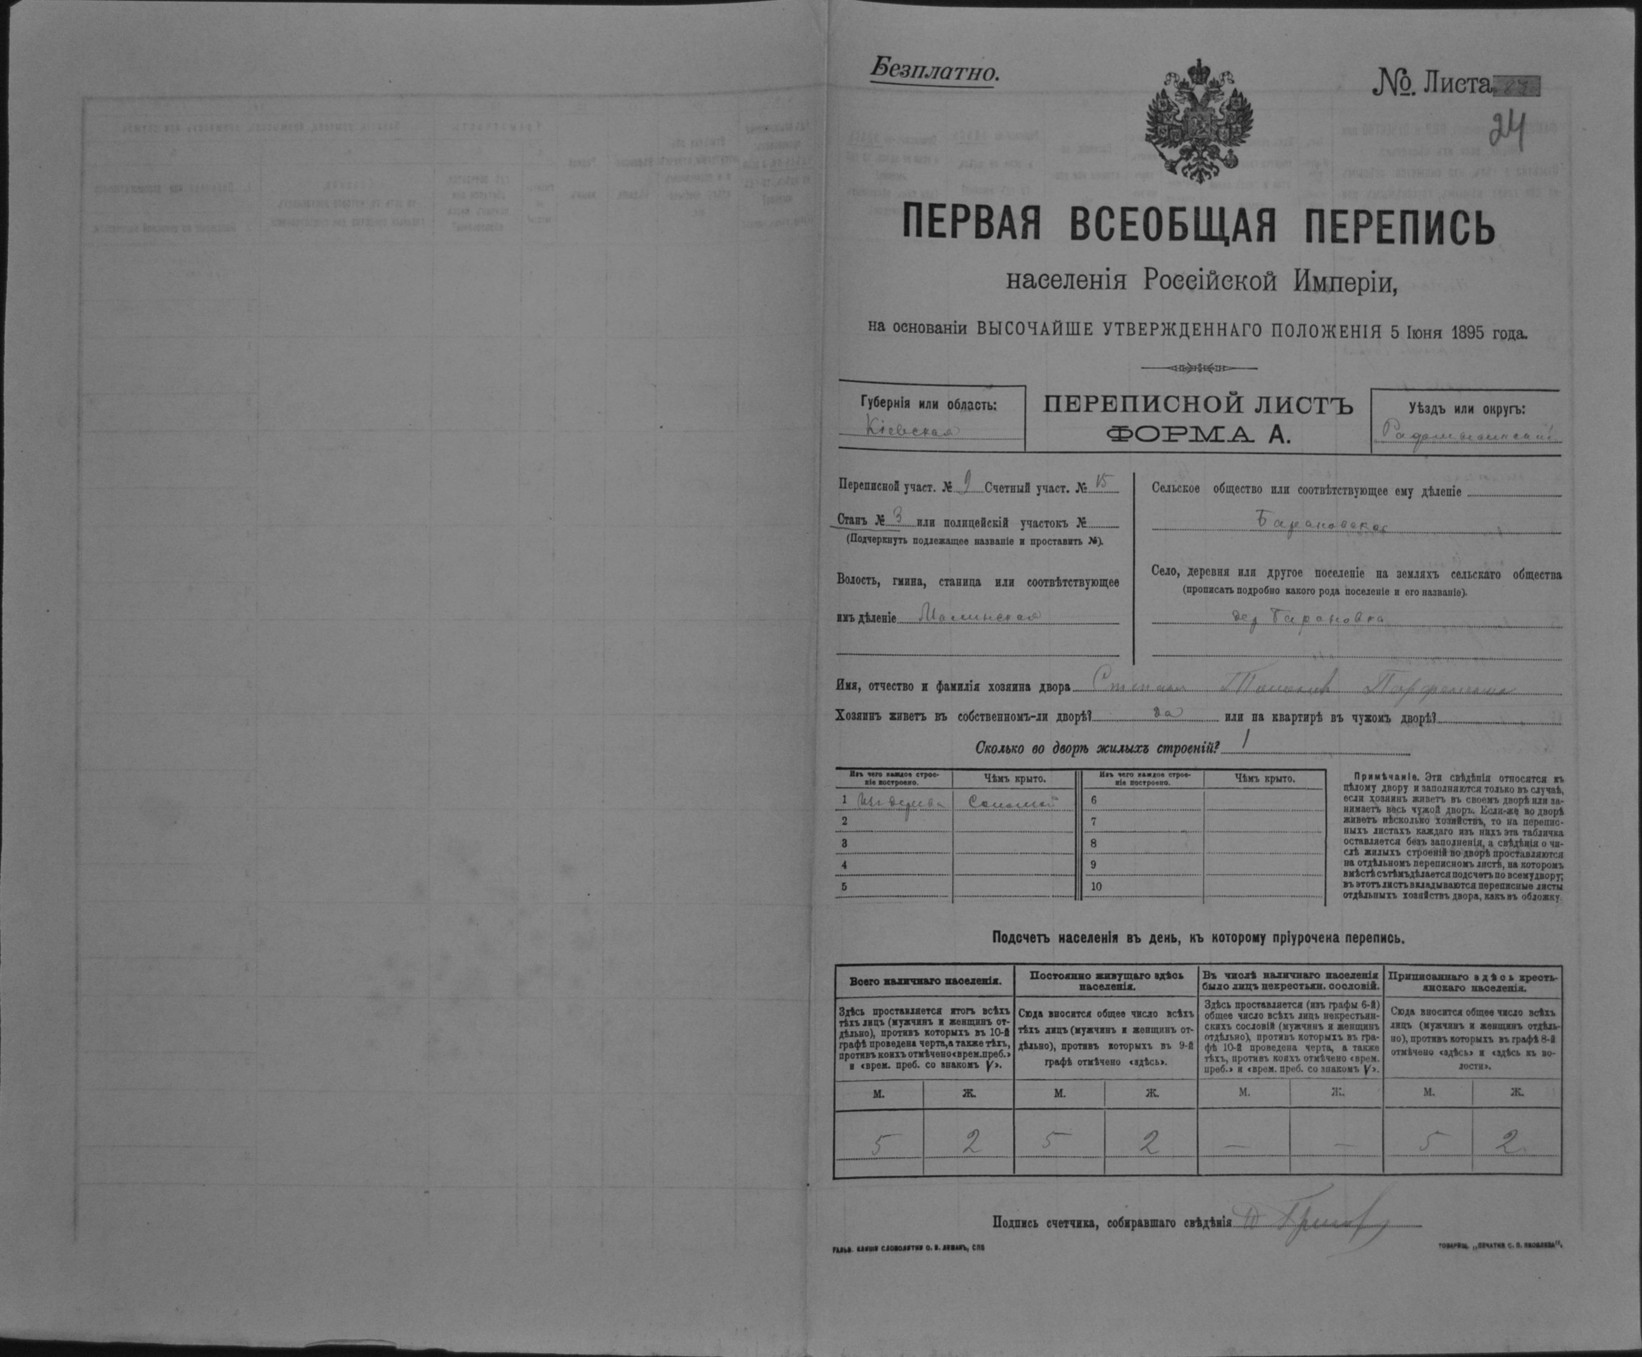 Безплатно.
№. Листа
24
ПЕРВАЯ ВСЕОБЩАЯ ПЕРЕПИСЬ
населенія Россійской Имперіи,
на основаніи ВЫСОЧАЙШЕ УТВЕРЖДЕННАГО ПОЛОЖЕНІЯ 5 Іюня 1895 года.
Губернія или область:
Кіевская
ПЕРЕПИСНОЙ ЛИСТЪ
ФОРМА А.
Уѣздъ или округъ:
Радомысльскій
Переписной участ. № 9 Счетный участ. № 15
Станъ № 3 или полицейскій участокъ №
(Подчеркнуть подлежащее названіе и проставить №).
Волость, гмина, станица или соотвѣтствующее
имъ дѣленіе Малинская
Сельское общество или соотвѣтствующее ему дѣленіе
Барановское
Село, деревня или другое поселеніе на земляхъ сельскаго общества
(прописать подробно какого рода поселеніе и его названіе).
дер Барановка
Имя, отчество и фамилія хозяина двора Степанъ
Хозяинъ живетъ въ собственномъ-ли дворѣ? да или на квартирѣ въ чужомъ дворѣ?
Сколько во дворѣ жилыхъ строеній? 1
Изъ чего каждое строе-
ніе построено.
Чѣмъ крыто.
Изъ чего каждое строе-
ніе построено.
Чѣмъ крыто.
1 Изъ дерева Соломой 6
2 7
3 8
4 9
5 10
Примѣчаніе. Эти свѣдѣнія относятся къ
цѣлому двору и заполняются только въ случаѣ,
если хозяинъ живетъ въ своемъ дворѣ или за-
нимаетъ весь чужой дворъ. Если-же во дворѣ
живетъ нѣсколько хозяйствъ, то на перепис-
ныхъ листахъ каждаго изъ нихъ эта табличка
оставляется безъ заполненія, а свѣдѣнія о чи-
слѣ жилыхъ строеній во дворѣ проставляются
на отдѣльномъ переписномъ листѣ, на которомъ
вмѣстѣ съ тѣмъ дѣлается подсчетъ по всему двору;
въ этотъ листъ вкладываются переписные листы
отдѣльныхъ хозяйствъ двора, какъ въ обложку.
Подсчетъ населенія въ день, къ которому пріурочена перепись.
Всего наличнаго населенія.
Здѣсь проставляется итогъ всѣхъ
тѣхъ лицъ (мужчинъ и женщинъ от-
дѣльно), противъ которыхъ въ 10-й
графѣ проведена черта, а также тѣхъ,
противъ коихъ отмѣчено «врем. преб.»
и «врем. преб. со знакомъ V».
Постоянно живущаго здѣсь
населенія.
Сюда вносится общее число всѣхъ
тѣхъ лицъ (мужчинъ и женщинъ от-
дѣльно), противъ которыхъ въ 9-й
графѣ отмѣчено «здѣсь».
Въ числѣ наличнаго населенія
было лицъ некрестьян. сословій.
Здѣсь проставляется (изъ графы 6-й)
общее число всѣхъ лицъ некрестьян-
скихъ сословій (мужчинъ и женщинъ
отдѣльно), противъ которыхъ въ гра-
фѣ 10-й проведена черта, а также
тѣхъ, противъ коихъ отмѣчено «врем.
преб.» и «врем. преб. со знакомъ V».
Приписаннаго здѣсь кресть-
янскаго населенія.
Сюда вносится общее число всѣхъ
лицъ (мужчинъ и женщинъ отдѣль-
но), противъ которыхъ въ графѣ 8-й
отмѣчено «здѣсь» и «здѣсь въ во-
лости».
М. Ж. М. Ж. М. Ж. М. Ж.
5 2 5 2 — — 5 2
Подпись счетчика, собиравшаго свѣдѣнія
ГАЛЬВ. КЛИШЕ СЛОВОЛИТНИ О. И. ЛЕМАНЪ, СПБ
ТОВАРИЩ. „ПЕЧАТНЯ С. П. ЯКОВЛЕВА".